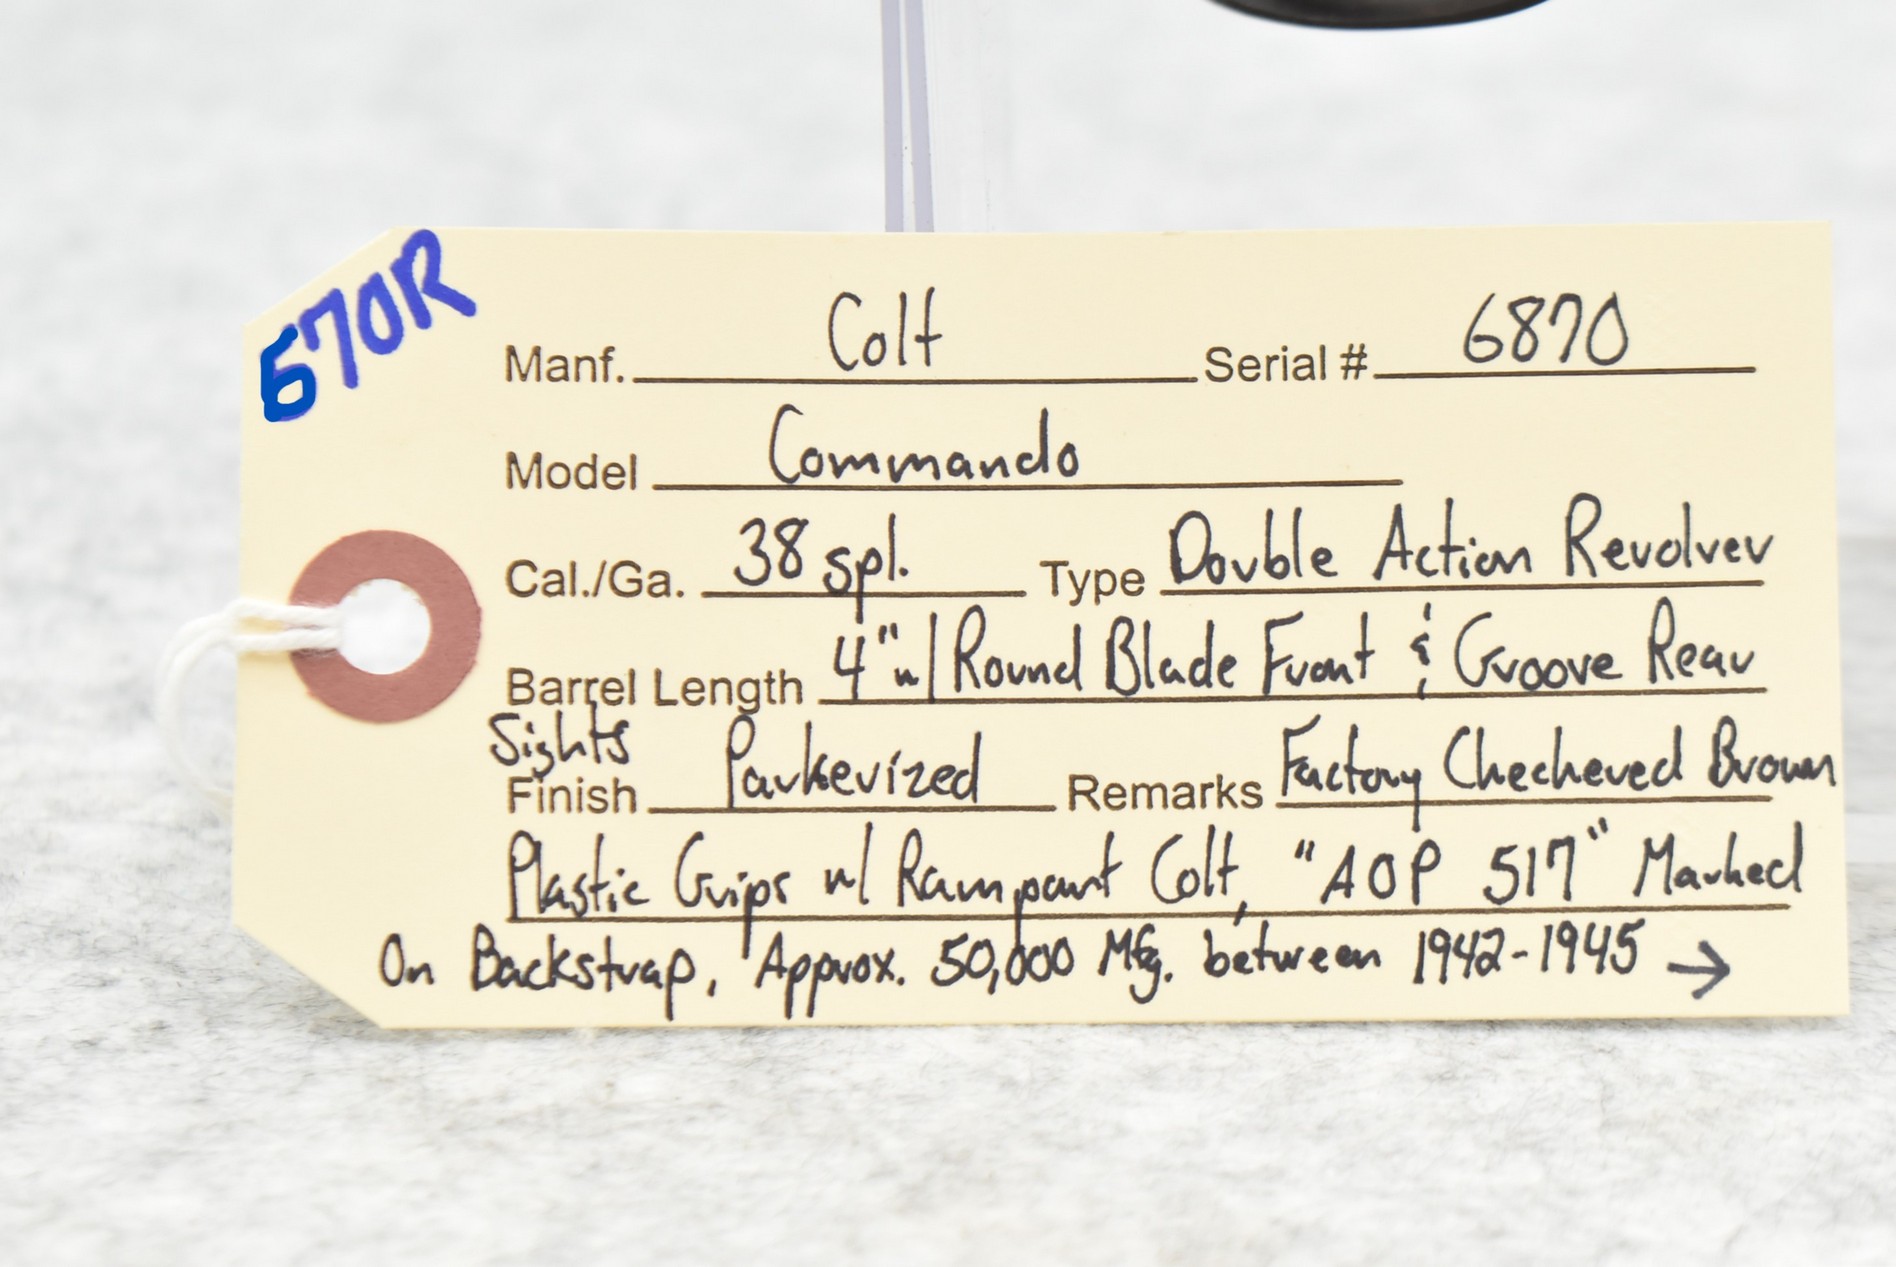 570R
Manf. Colt Serial # 6870
Model Commando
Cal./Ga. 38 spl. Type Double Action Revolver
Barrel Length 4" w/ Round Blade Front & Groove Rear
Sights
Finish Parkerized Remarks Factory Checkered Brown
Plastic Grips w/ Rampant Colt, "AOP 517" Marked
On Backstrap, Approx. 50,000 Mfg. between 1942-1945 →